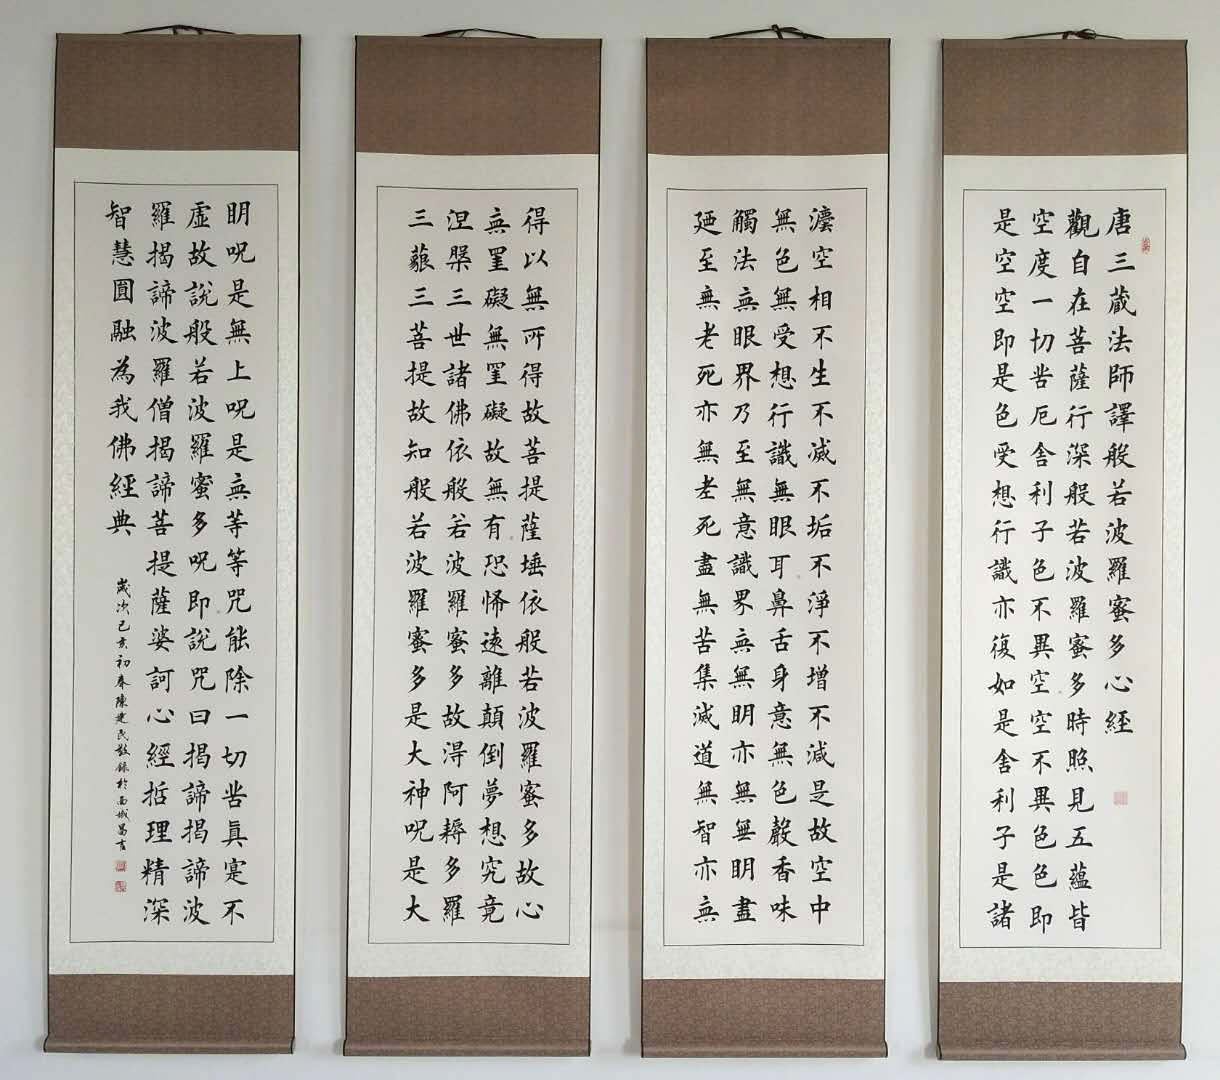 唐三蔵法師譯般若波羅蜜多心経
觀自在菩薩行深般若波羅蜜多時照見五蘊皆
空度一切苦厄舍利子色不異空空不異色色即
是空空即是色受想行識亦復如是舍利子是諸
灋空相不生不滅不垢不淨不增不減是故空中
無色無受想行識無眼耳鼻舌身意無色聲香味
觸法無眼界乃至無意識界無無明亦無無明盡
廼至無老死亦無老死盡無苦集滅道無智亦無
得以無所得故菩提薩埵依般若波羅蜜多故心
無罣礙無罣礙故無有恐怖遠離顛倒夢想究竟
涅槃三世諸佛依般若波羅蜜多故得阿耨多羅
三藐三菩提故知般若波羅蜜多是大神呪是大
明呪是無上呪是無等等咒能除一切苦真寔不
虛故說般若波羅蜜多呪即說咒曰揭諦揭諦波
羅揭諦波羅僧揭諦菩提薩婆訶心經哲理精深
智慧圓融為我佛經典
歲次己亥初春陳建民敬錄於西域昌吉